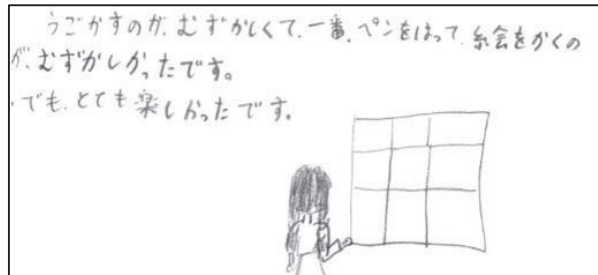 うごかすのが、むずかしくて、一番、ペンをはって、絵をかくの
が、むずかしかったです。
でも、とても楽しかったです。